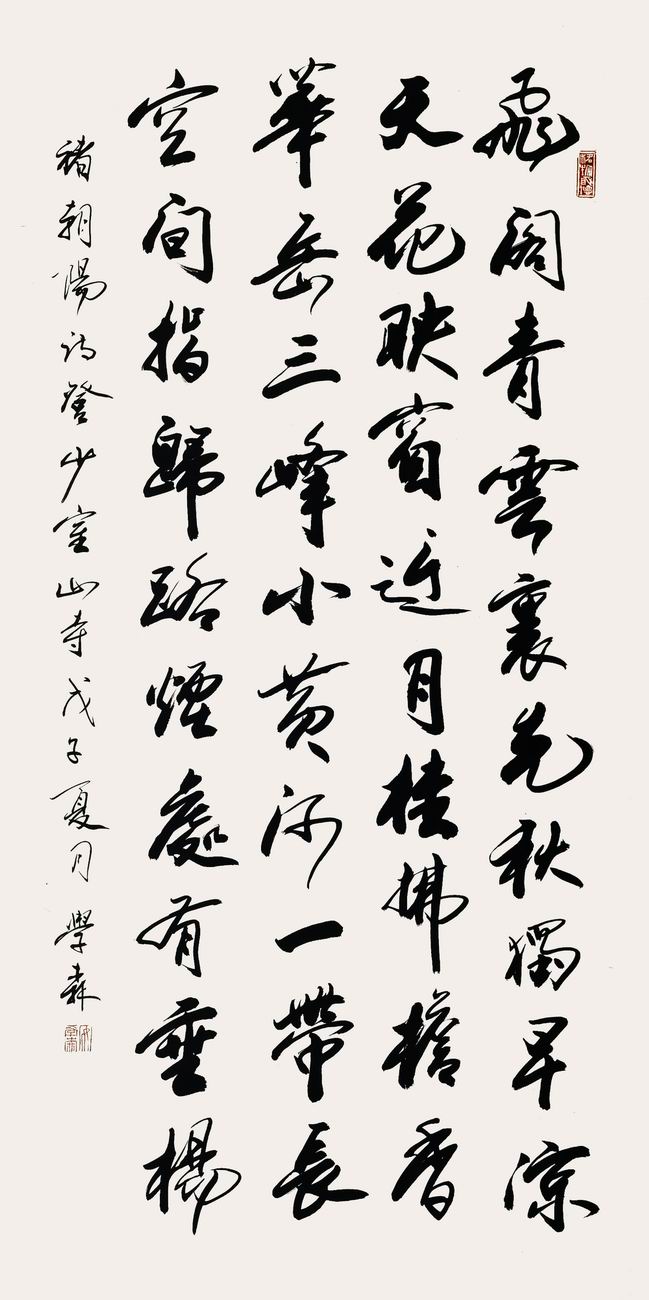 飛閣青雲裏先秋獨早凉
天花映窗近月桂拂檐香
華岳三峰小黄河一帶長
空间指歸路煙處有垂楊
褚朝陽詩登少室山寺戊子夏月 學森